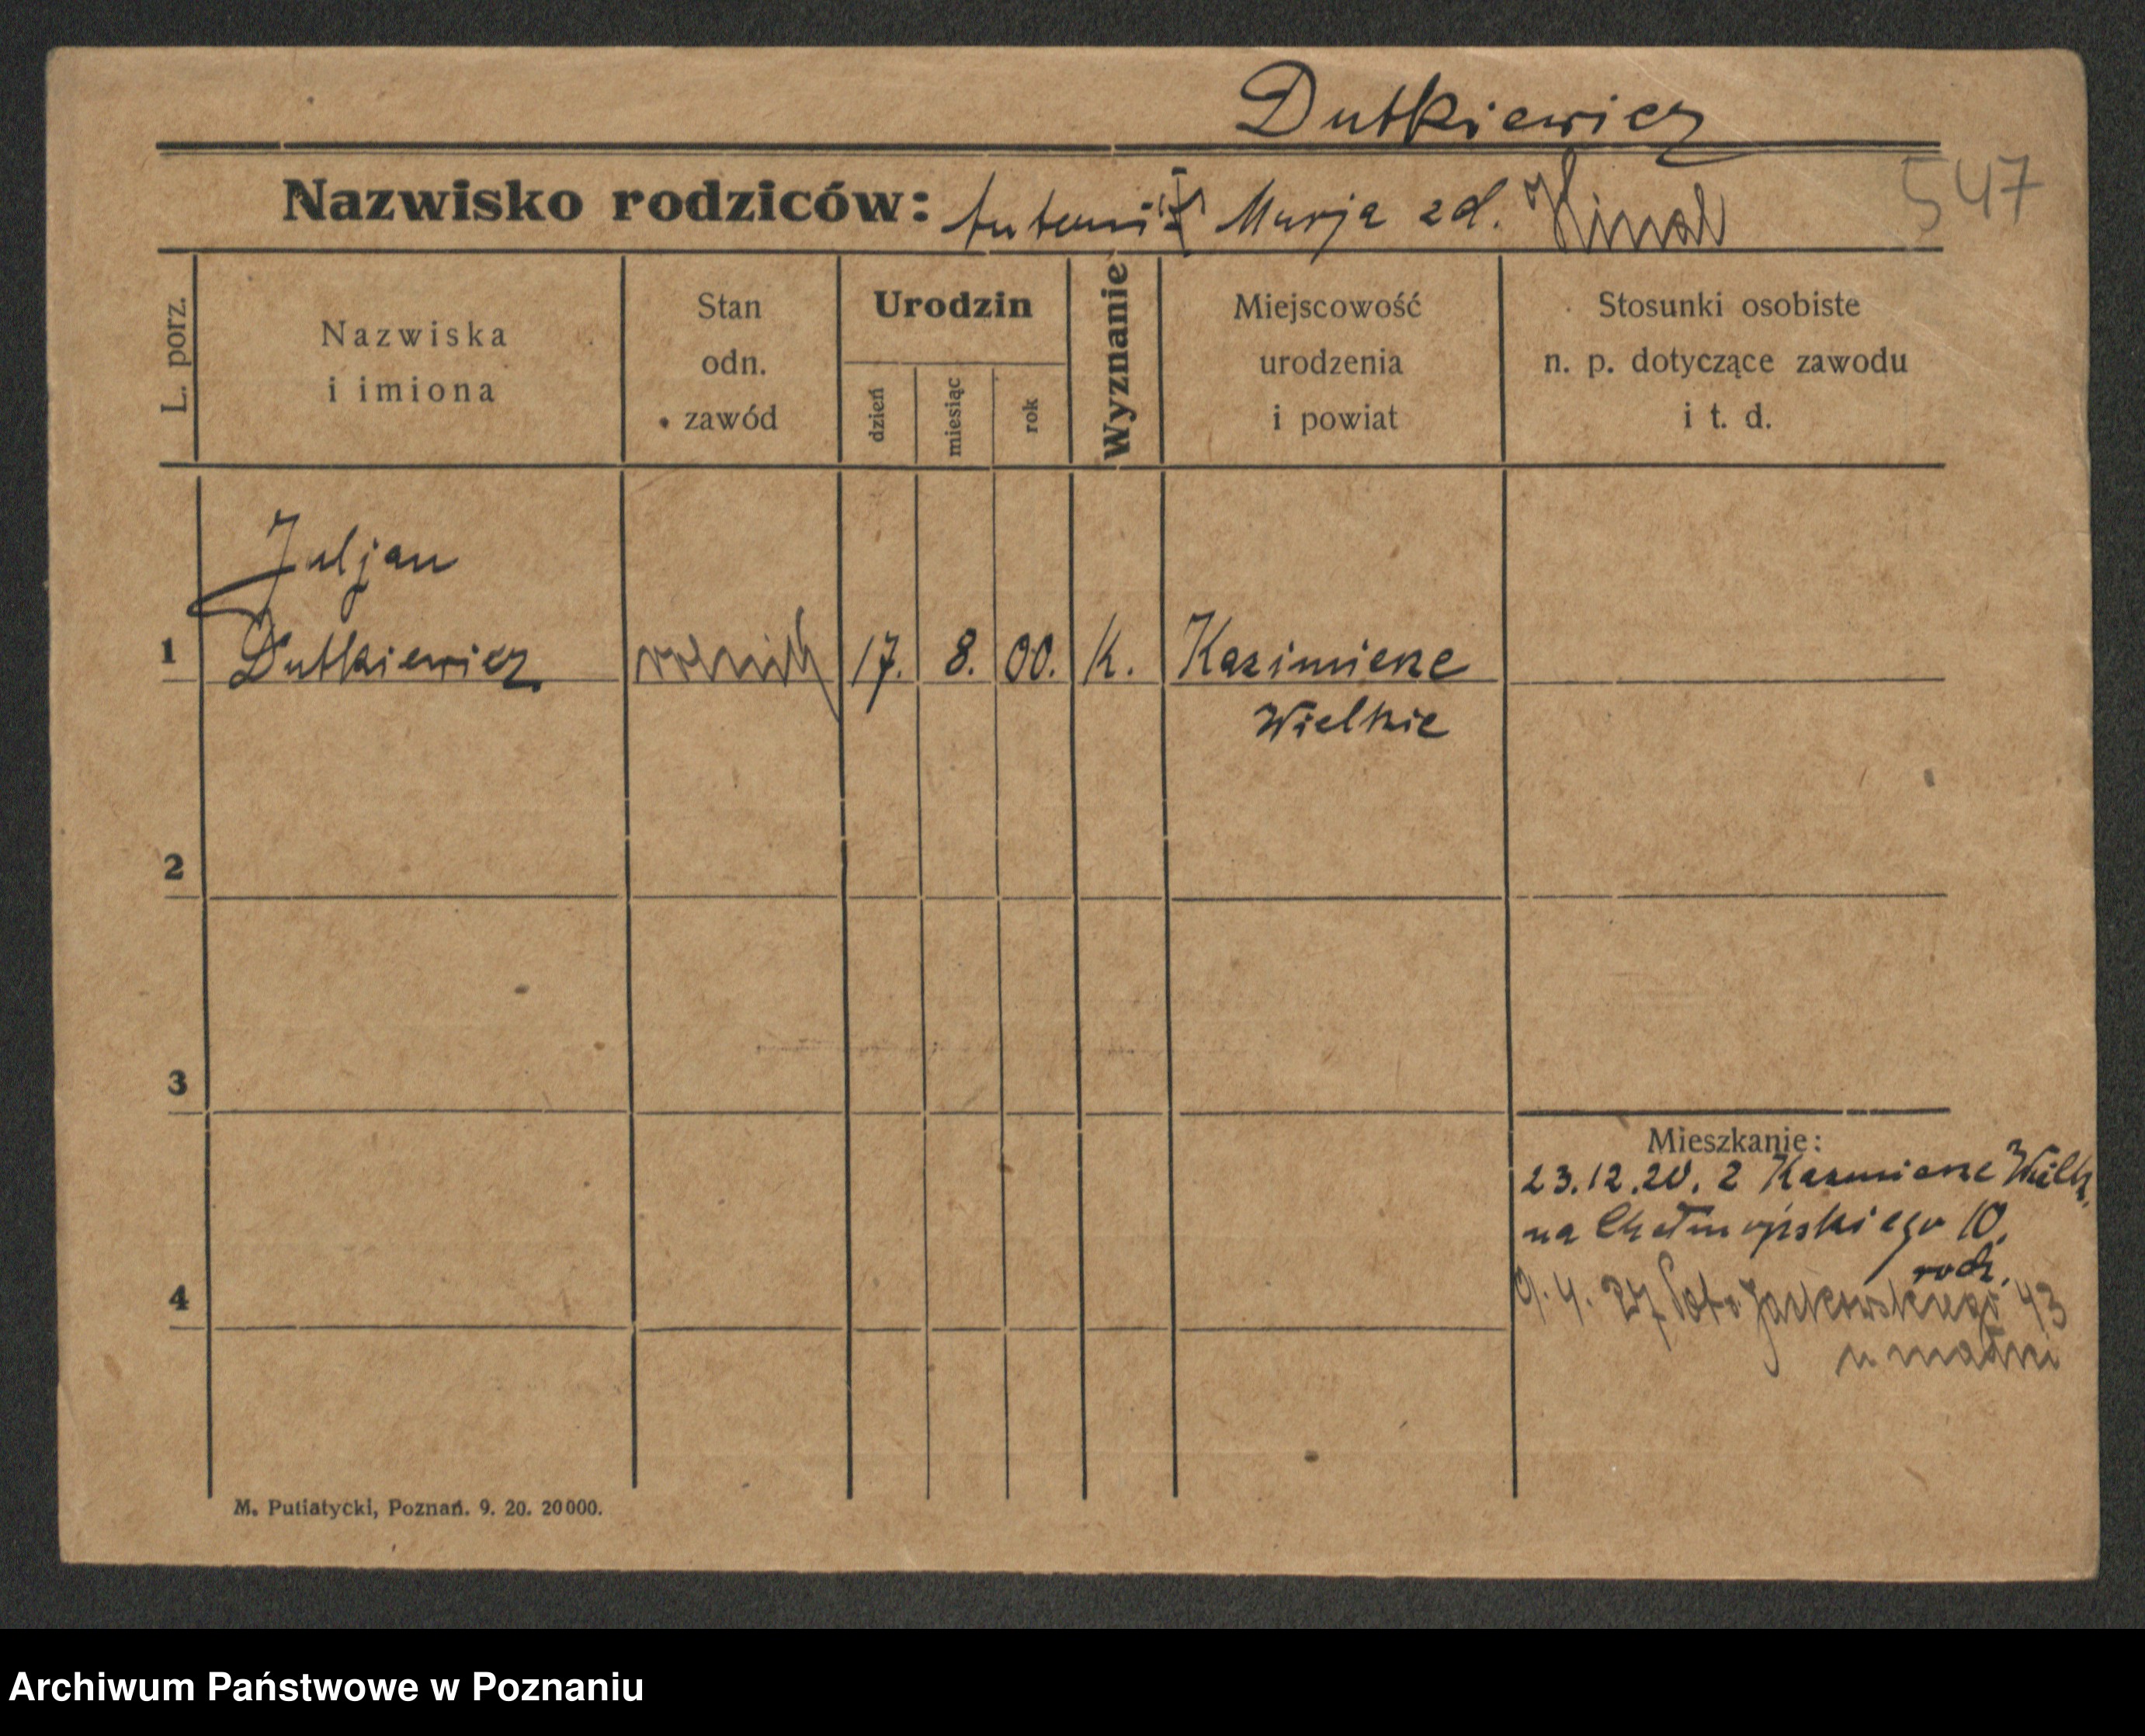 Dutkiewicz
547
Nazwisko rodziców: Antoni i Marja zd.
L. porz.
Nazwiska
i imiona
Stan
odn.
zawód
Urodzin
dzień
miesiąc
rok
Wyznanie
Miejscowość
urodzenia
i powiat
Stosunki osobiste
n. p. dotyczące zawodu
i t. d.
Juljan
1 Dutkiewicz rolnik 17. 8. 00. K. Kazimierz
Wielkie
2
3
4
Mieszkanie:
23.12.20. z Kazimierz Wielk.
na Chełmońskiego 10.
rodz.
9. 4. 27 Pat. Jackowskiego 43
M. Putiatycki, Poznań. 9. 20. 20000.
Archiwum Państwowe w Poznaniu